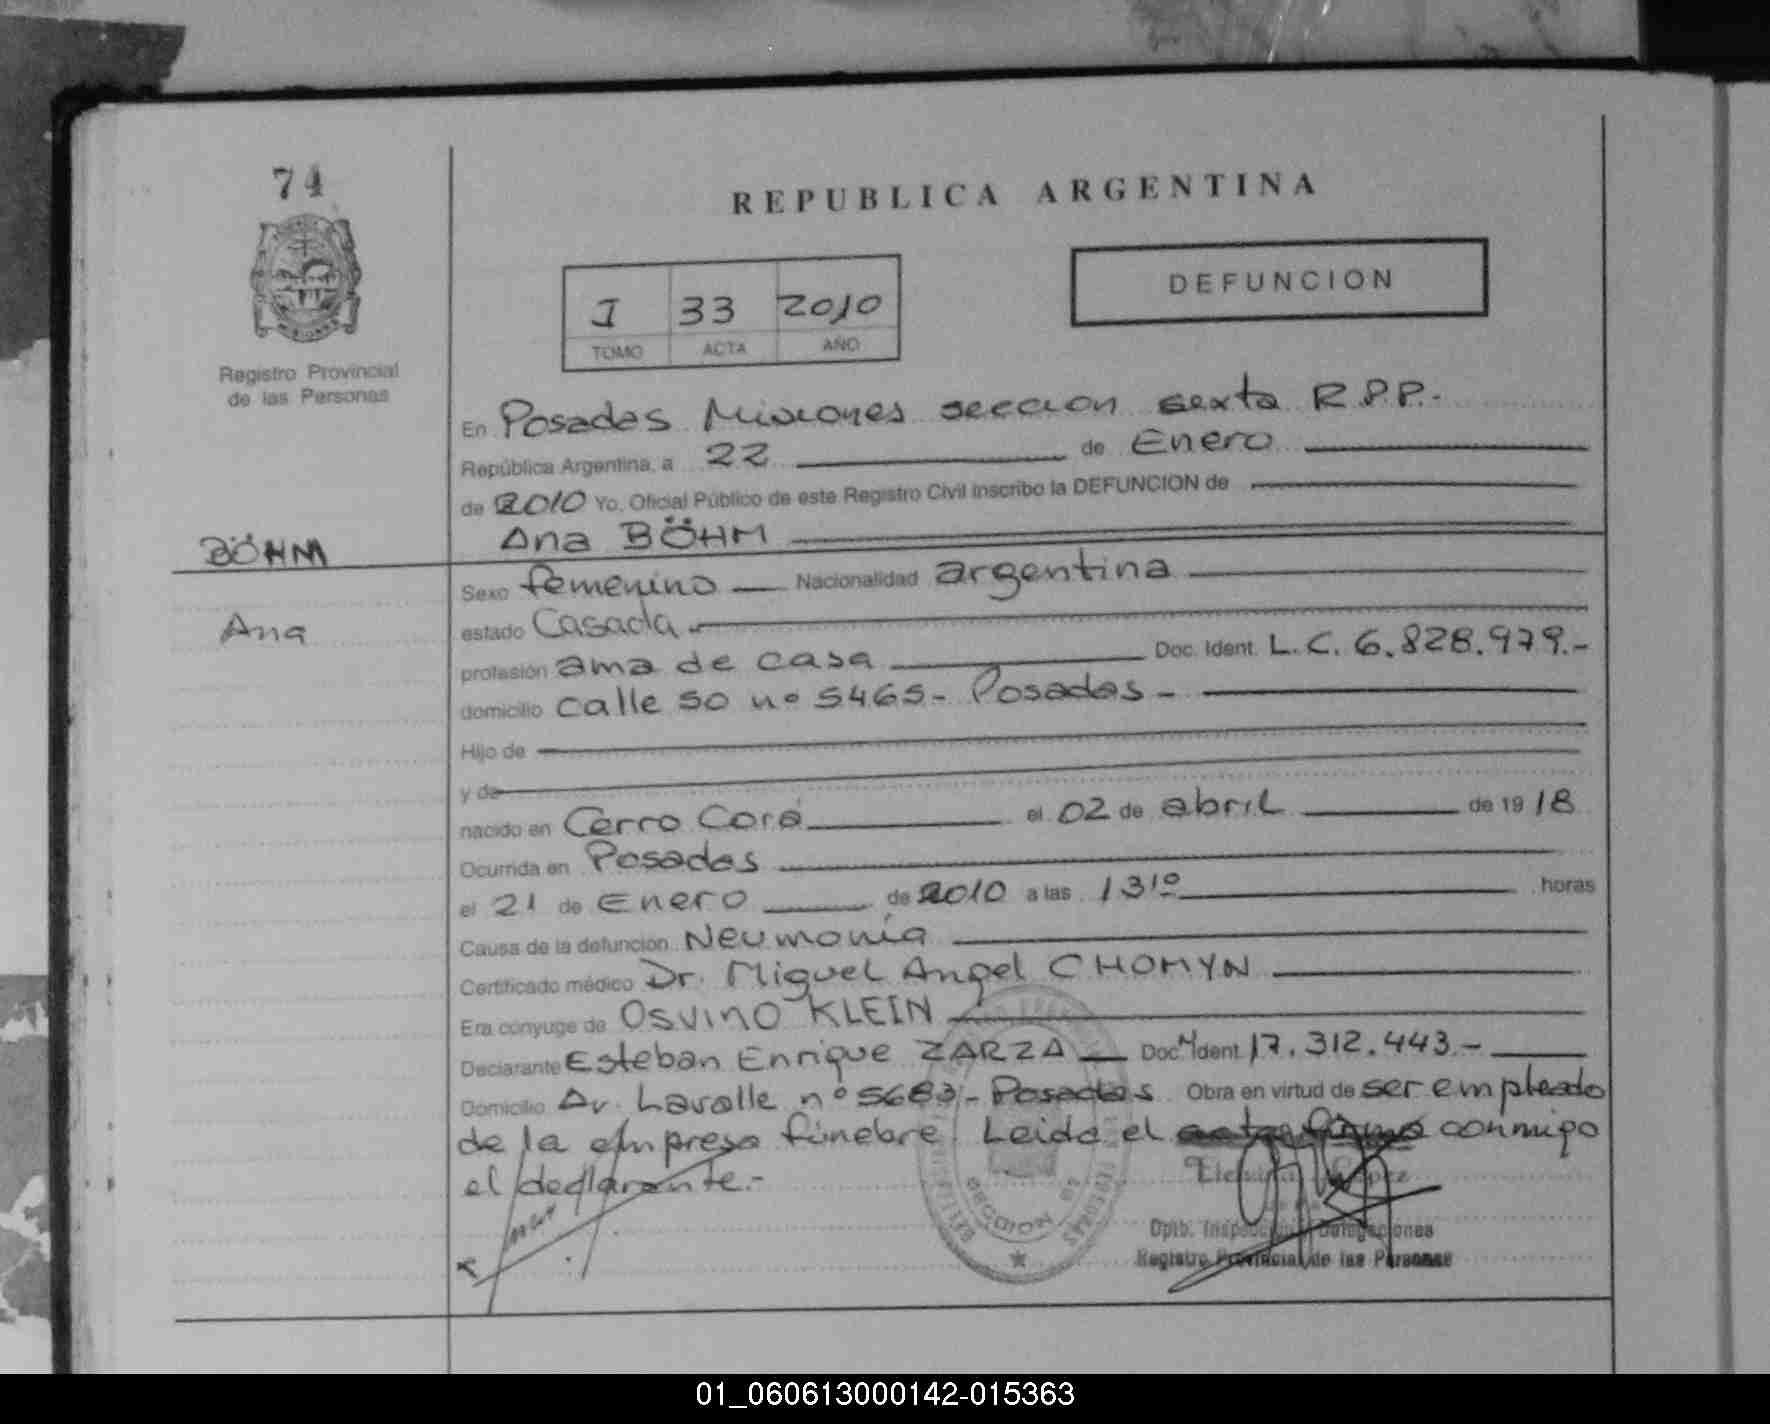 74
REPUBLICA ARGENTINA
DEFUNCION
I 33 2010
TOMO ACTA AÑO
Registro Provincial
de las Personas
En Posadas Misiones seccion sexta R.P.P.-
República Argentina, a 22 de Enero
de 2010 Yo, Oficial Público de este Registro Civil inscribo la DEFUNCION de
Ana BÖHM
BÖHM
Ana
Sexo femenino Nacionalidad argentina
estado Casada
profesión ama de casa Doc. Ident. L.C. 6.828.979.-
domicilio calle 50 nº 5465- Posadas -
Hijo de
y de
nacido en Cerro Corá el 02 de abril de 1918
Ocurrida en Posadas
el 21 de Enero de 2010 a las 13¹⁰ horas
Causa de la defunción Neumonía
Certificado médico Dr. Miguel Angel CHOMYN
Era cónyuge de Osvino KLEIN
Declarante Esteban Enrique ZARZA Doc. Ident. 17.312.443.-
Domicilio Av. Lavalle nº 5683- Posadas Obra en virtud de ser empleado
de la empresa fúnebre. Leida el acta firma conmigo
el declarante.-
SECCION 6a
Dpto. Inspección Delegaciones
Registro Provincial de las Personas
01_060613000142-015363